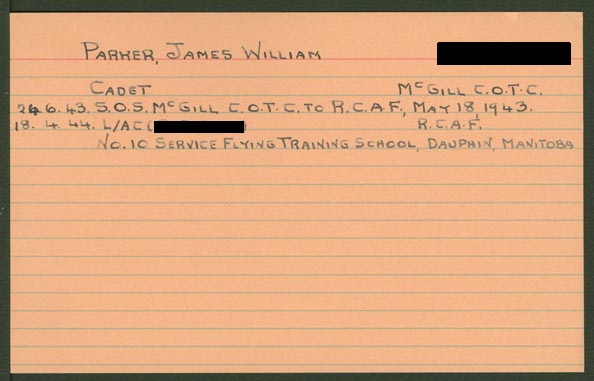 PARKER, JAMES WILLIAM
CADET McGILL C.O.T.C.
24.6.43. S.O.S. McGILL C.O.T.C. TO R.C.A.F., MAY 18 1943.
18. 4. 44. L/AC ( ) R.C.A.F.
NO. 10 SERVICE FLYING TRAINING SCHOOL, DAUPHIN, MANITOBA